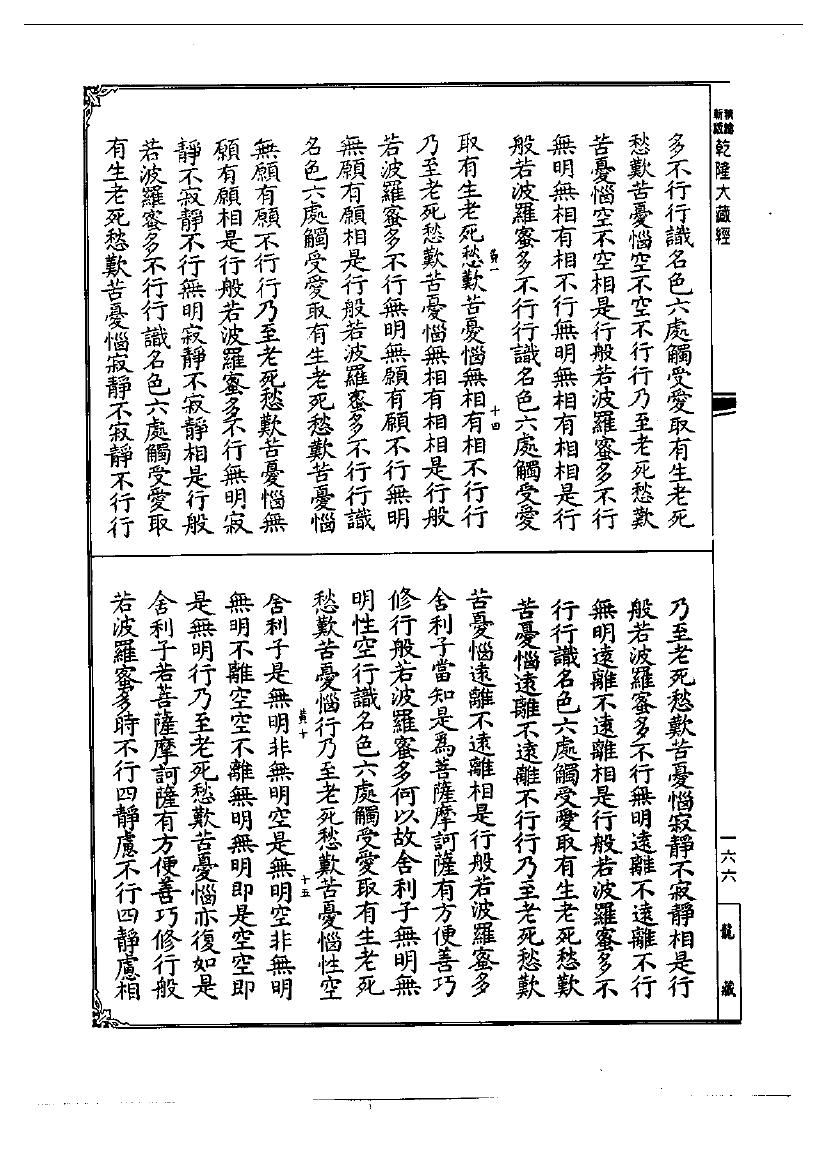 乾隆大藏經
多不行行識名色六處觸受愛取有生老死
愁歎苦憂惱空不空不行行乃至老死愁歎
苦憂惱空不空相是行般若波羅蜜多不行
無明無相有相不行無明無相有相相是行
般若波羅蜜多不行行識名色六處觸受愛
黃一 十四
取有生老死愁歎苦憂惱無相有相不行行
乃至老死愁歎苦憂惱無相有相相是行般
若波羅蜜多不行無明無願有願不行無明
無願有願相是行般若波羅蜜多不行行識
名色六處觸受愛取有生老死愁歎苦憂惱
無願有願不行行乃至老死愁歎苦憂惱無
願有願相是行般若波羅蜜多不行無明寂
靜不寂靜不行無明寂靜不寂靜相是行般
若波羅蜜多不行行識名色六處觸受愛取
有生老死愁歎苦憂惱寂靜不寂靜不行行
乃至老死愁歎苦憂惱寂靜不寂靜相是行
般若波羅蜜多不行無明遠離不遠離不行
無明遠離不遠離相是行般若波羅蜜多不
行行識名色六處觸受愛取有生老死愁歎
苦憂惱遠離不遠離不行行乃至老死愁歎
苦憂惱遠離不遠離相是行般若波羅蜜多
舍利子當知是爲菩薩摩訶薩有方便善巧
修行般若波羅蜜多何以故舍利子無明無
明性空行識名色六處觸受愛取有生老死
愁歎苦憂惱行乃至老死愁歎苦憂惱性空
黃十 十五
舍利子是無明非無明空是無明空非無明
無明不離空空不離無明無明即是空空即
是無明行乃至老死愁歎苦憂惱亦復如是
舍利子若菩薩摩訶薩有方便善巧修行般
若波羅蜜多時不行四靜慮不行四靜慮相
一六六
龍藏